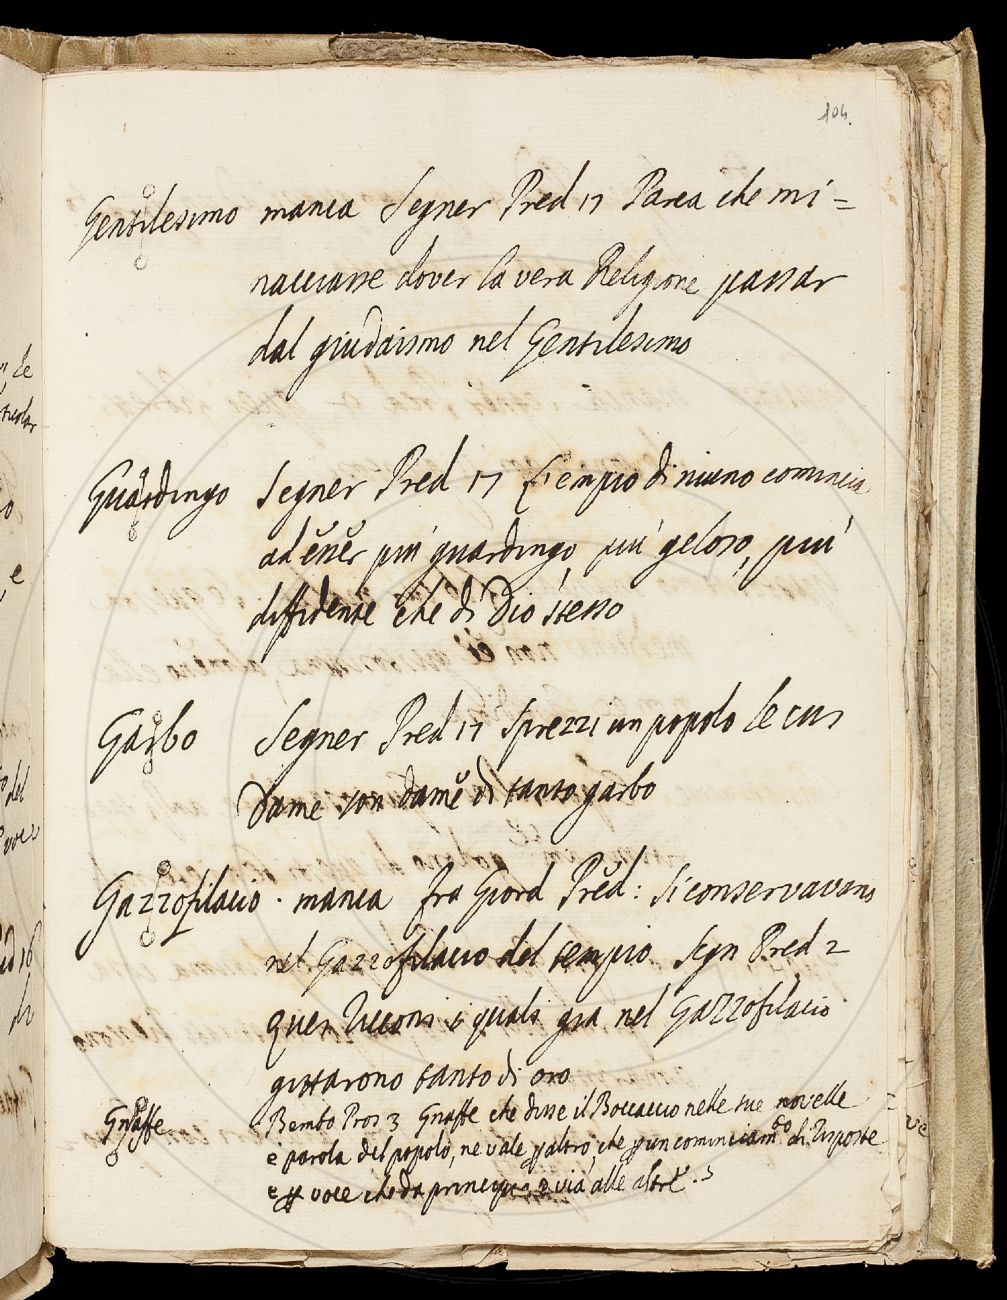 104.
Gentilesimo manca Segner Pred 17 Parea che mi=
nacciasse dover la vera Religione passar
dal giudaismo nel Gentilesimo
Guardingo Segner Pred 17 Esempio di niuno comincia
ad essere più guardingo, più geloso, più
diffidente che di Dio stesso
Garbo Segner Pred 17 Sprezzi un popolo le cui
Dame son dame di tanto garbo
Gazzofilacio. manca fra Giord Pred: Si conservavano
nel Gazzofilacio del tempio Segn Pred 2
quei Ricconi i quali già nel Gazzofilacio
gittarono tanto di oro
Gnaffe Bembo Pros 3 Gnaffe che disse il Boccaccio nelle sue novelle
e parola del popolo, ne vale altro, che un cominciam.to di risposte
e voce che da principio e via alle altre.